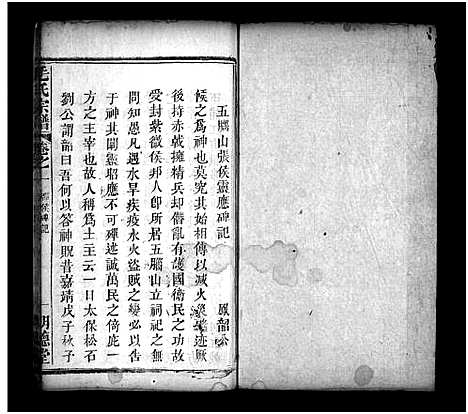 五腦山張侯靈應碑記
鳳韶公
侯之爲神也莫究其始相傳以滅火策迹厥
後持赤戟擁精兵却僭亂有護國衛民之功故
受封紫微侯邦人卽所居五腦山立祠祀之無
問知愚凡遇水旱疾疫水火盜賊之變必以告
于神其關憲昭應不可殫述誠萬民之倚庇一
方之主宰也故人稱爲土主云一日太保松石
劉公謂韶曰吾何以答神貺昔嘉靖戊子秋子
毛氏宗譜
卷之一
侯神記
明德堂